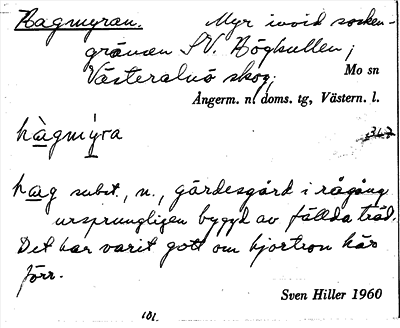 Hagmyran. Myr invid socken-
gränsen SV. Högkullen;
Västeralnö skog. Mo sn
Ångerm. n. doms. tg, Västern. l.
hàgmýra
hag subst., n., gärdesgård i rågång
ursprungligen byggd av fällda träd.
Det har varit gott om hjortron här
förr.
Sven Hiller 1960
101.